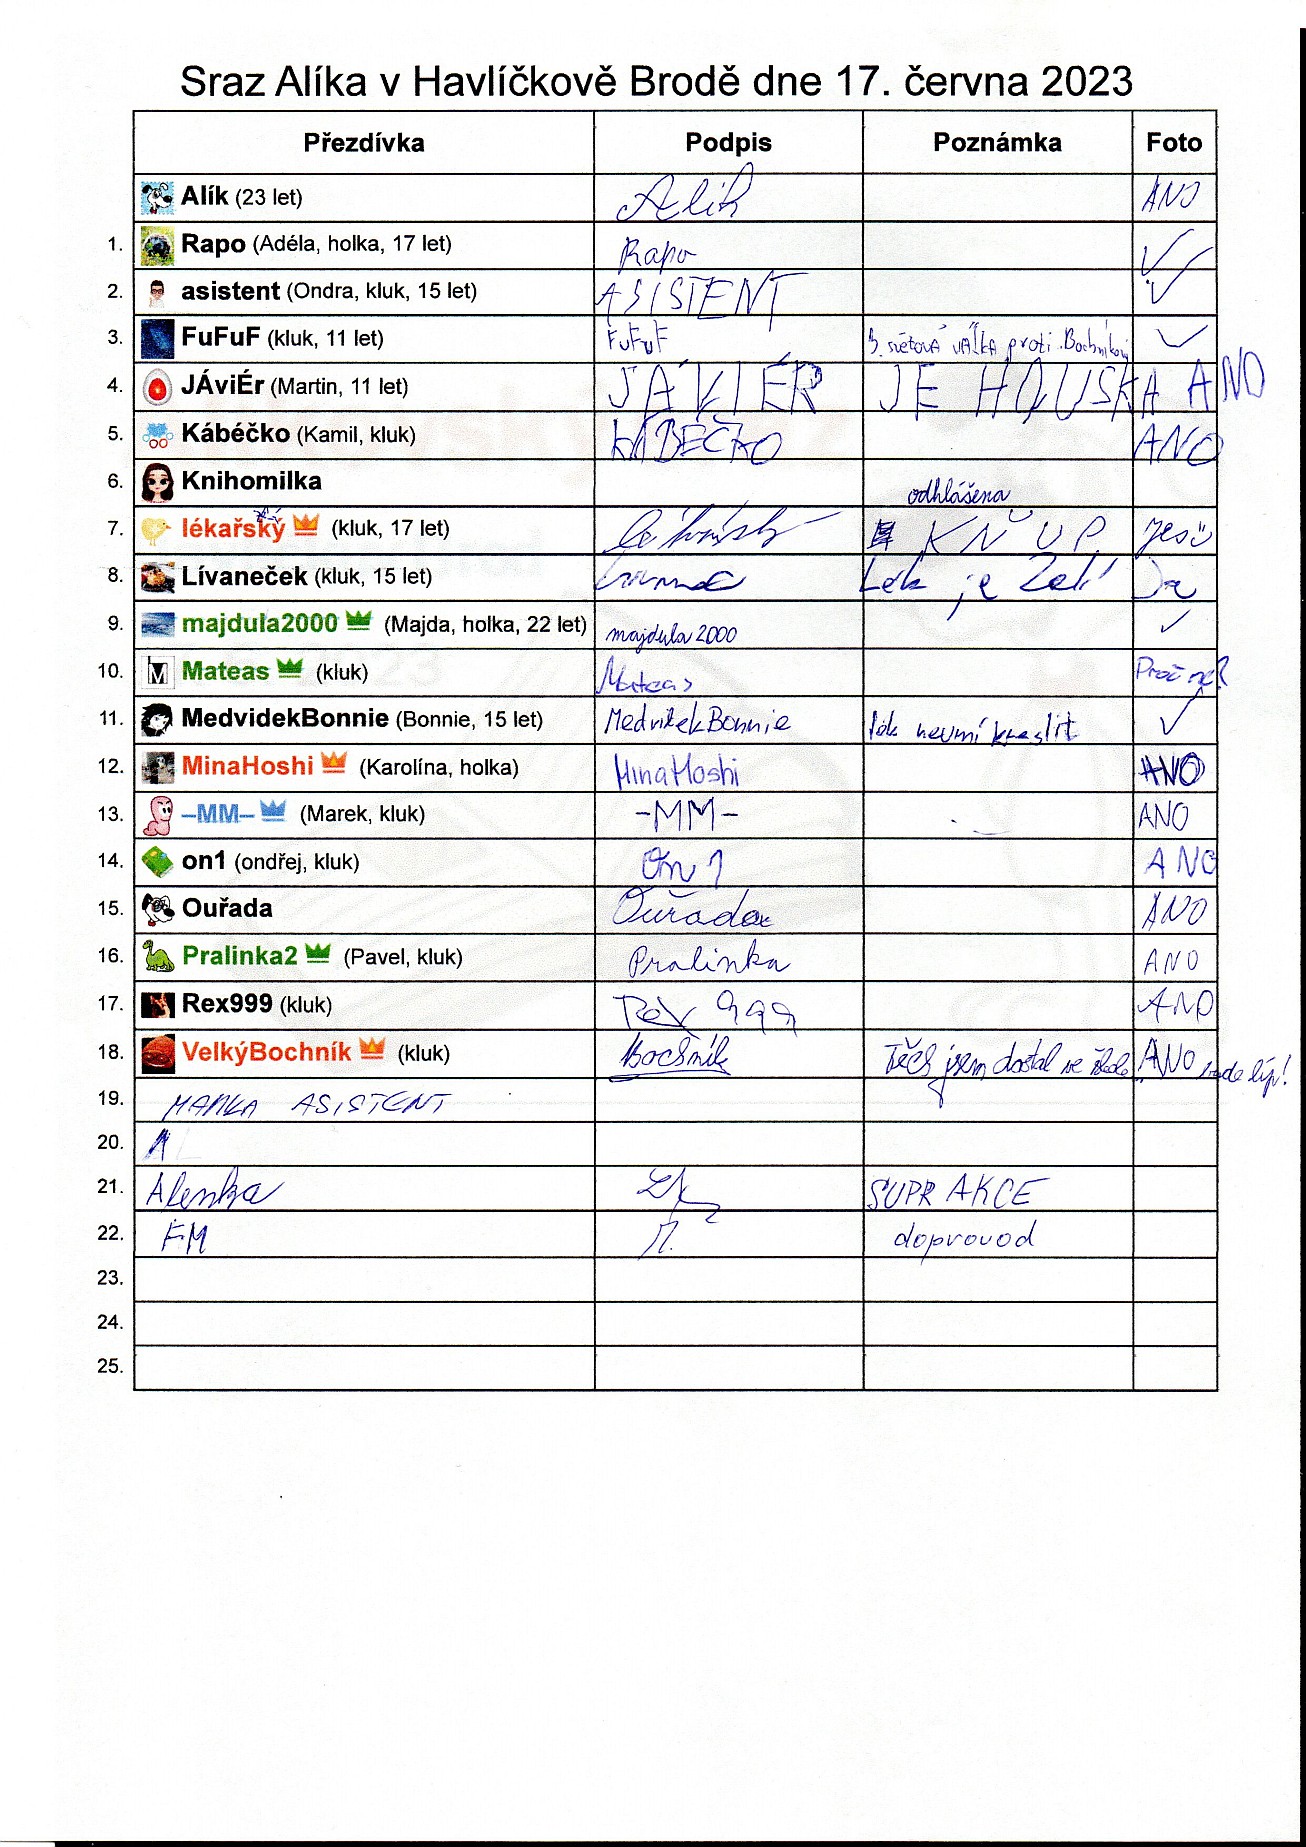 Sraz Alíka v Havlíčkově Brodě dne 17. června 2023
Přezdívka Podpis Poznámka Foto
Alík (23 let) Alík ANO
1. Rapo (Adéla, holka, 17 let) Rapo
2. asistent (Ondra, kluk, 15 let) ASISTENT
3. FuFuF (kluk, 11 let) FuFuF 3. světová válka proti Bochníkovi
4. JÁviÉr (Martin, 11 let) JÁVIÉR JE HOUSKA ANO
5. Kábéčko (Kamil, kluk) KÁBÉČKO ANO
6. Knihomilka odhlášena
7. lékařský (kluk, 17 let) lékařský KŇUP
8. Lívaneček (kluk, 15 let) Lék je Zelí
9. majdula2000 (Majda, holka, 22 let) majdula2000
10. Mateas (kluk) Mateas Proč ne?
11. MedvidekBonnie (Bonnie, 15 let) MedvidekBonnie lék neumí kreslit
12. MinaHoshi (Karolína, holka) MinaHoshi ANO
13. –MM– (Marek, kluk) –MM– ANO
14. on1 (ondřej, kluk) On 1 ANO
15. Ouřada Ouřada ANO
16. Pralinka2 (Pavel, kluk) Pralinka ANO
17. Rex999 (kluk) Rex 999 ANO
18. VelkýBochník (kluk) Bochník Těch jsem dostal ve škole ANO
19. MAMKA ASISTENT
20.
21. Alenka SUPR AKCE
22. FM M. doprovod
23.
24.
25.